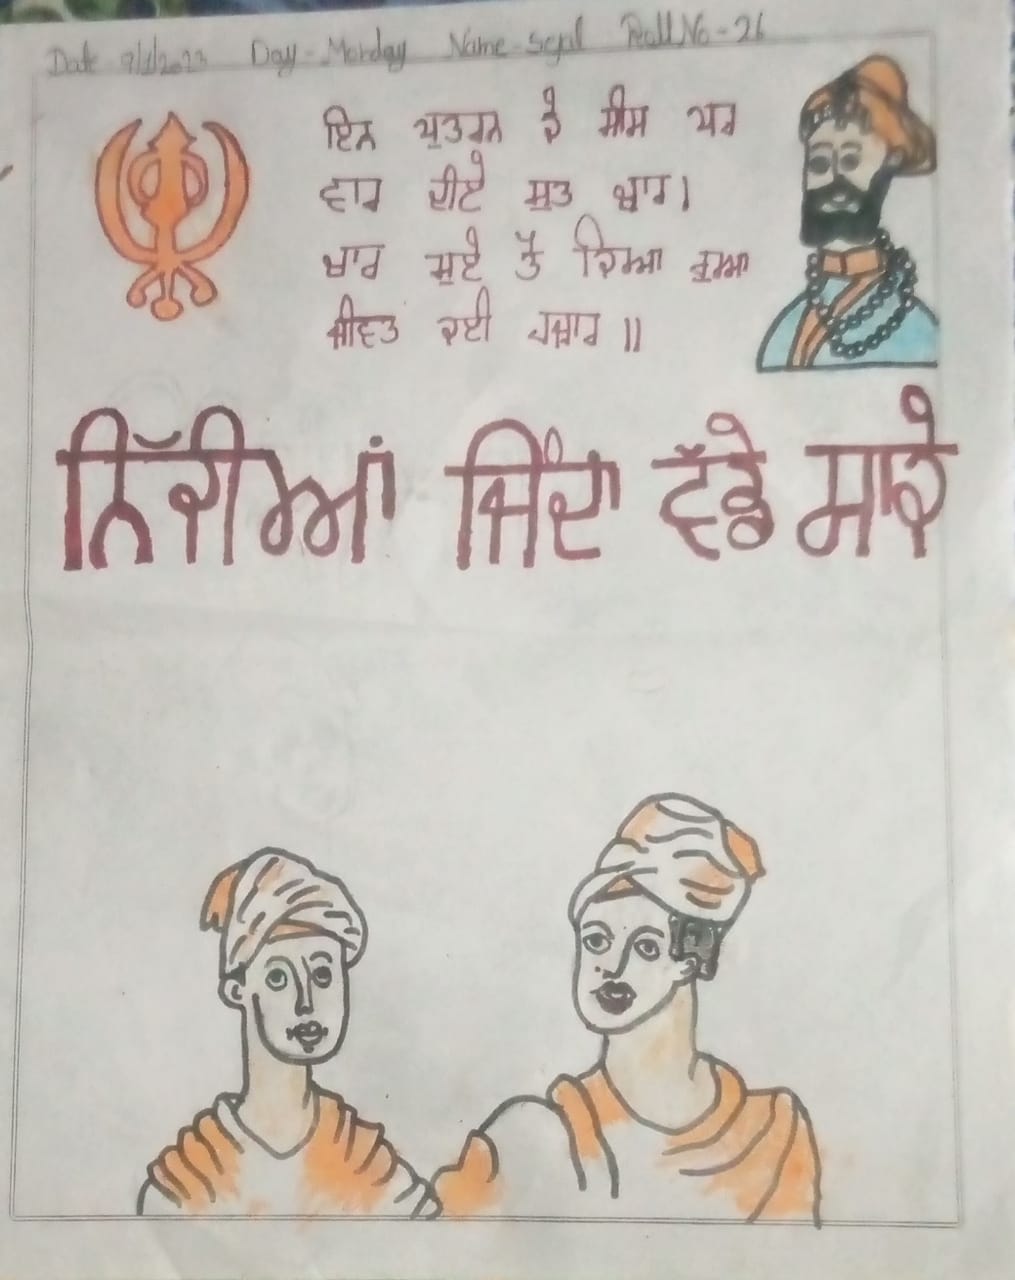 Date 9/1/2023 Day-Monday Name-Sejal Roll No-26
ਇਨ ਪੁਤਰਨ ਕੇ ਸੀਸ ਪਰ
ਵਾਰ ਦੀਏ ਸੁਤ ਚਾਰ।
ਚਾਰ ਮੁਏ ਤੋਂ ਕਿਆ ਹੁਆ
ਜੀਵਤ ਕਈ ਹਜ਼ਾਰ ॥
ਨਿੱਕੀਆਂ ਜਿੰਦਾਂ ਵੱਡੇ ਸਾਕੇ